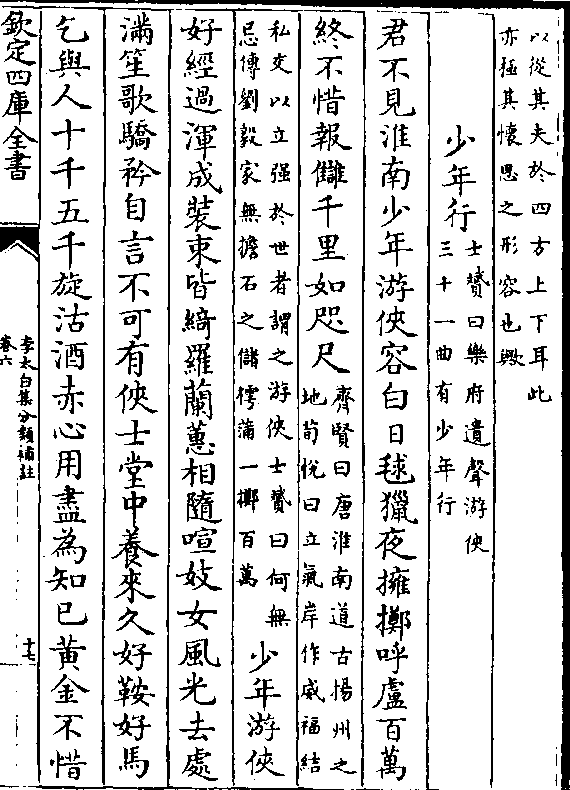 以從其夫於四方上下耳此
亦極其懷思之形容也歟
少年行
士贇曰樂府遺聲游俠
三十一曲有少年行
君不見淮南少年游俠客白日毬獵夜擁擲呼盧百萬
終不惜報讎千里如咫尺
齊賢曰唐淮南道古揚州之
地荀悅曰立氣岸作威福結
私交以立强於世者謂之游俠士贇曰何無
忌傳劉毅家無擔石之儲樗蒲一擲百萬
少年游俠
好經過渾成裝束皆綺羅蘭蕙相隨喧妓女風光去處
滿笙歌驕矜自言不可有俠士堂中養來久好鞍好馬
乞與人十千五千旋沽酒赤心用盡為知已黃金不惜
欽定四庫全書
李太白集分類補註
卷六
十七